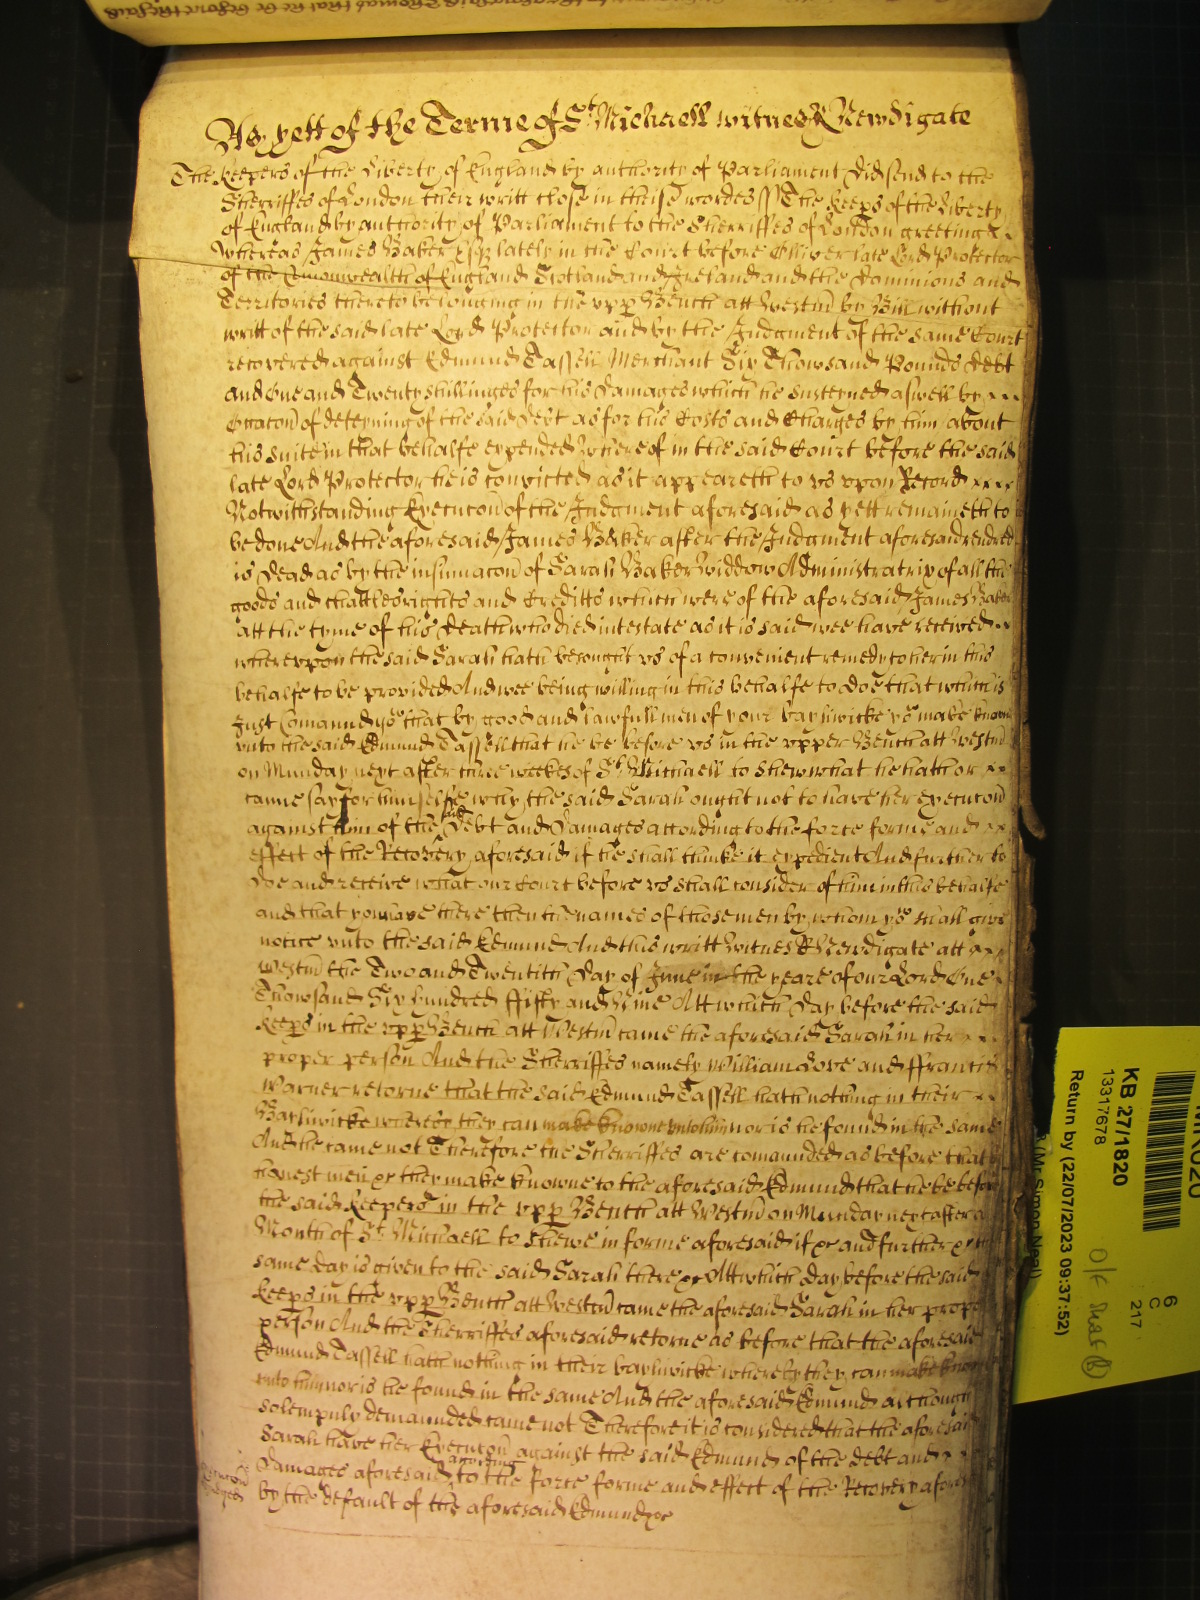 As yett of the Terme of St Michaell witnes R Newdigate
The Keepers of the Liberty of England by authority of Parliament did send to the
Sherriffes of London their writt close in theise wordes ss The Keeps of the Liberty
of England by authority of Parliament to the Sherriffes of London greeting
Whereas James Baker Esqr lately in the Court before Olliver late Lord Protector
of the Comonwealth of England Scotland and Ireland and the Dominions and
Territories thereto belonging in the upp Bench att Westm by Bill without
writt of the said late Lord Protector and by the Judgment of the same Court
recovered against Edmund Tassell Merchant Six Thowsand Pounds debt
and One and Twenty shillinges for his damages which he susteyned aswell by
Occacon of deteyning of the said debt as for his Costs and Charges by him about
his suite in that behalfe expended Whereof in the said Court before the said
late Lord Protector he is convicted as it appeareth to us upon Record
Notwithstanding Execucon of the Judgment aforesaid as yett remaineth to
be done And the aforesaid James Baker after the Judgment aforesaid rendred
is dead as by the insinuacon of Sarah Baker Widdow Administratrix of all the
goods and chattles rights and Creditts which were of the aforesaid James Baker
att the tyme of his death who died intestate as it is said wee have received
whereupon the said Sarah hath besought us of a convenient remedy to her in this
behalfe to be provided And wee being willing in this behalfe to doe that which is
Just Comaund yo that by good and lawfull men of your baylwicke yo make knowne
unto the said Edmund Tassell that he be before us in the upper Bench att Westm
on Munday next after three weekes of St Michaell to shew what he hath or
canne say for himselfe why the said Sarah ought not to have her execucon
against him of the said Debt and Damages according to the force forme and
effect of the Recovery aforesaid if he shall thinke it expedient And further to
doe and receive what our Court before us shall consider of him in this behalfe
and that you have there then the names of those men by whom yo shall give
notice unto the said Edmund And this writt Witnes R Newdigate att
Westm the Two and Twentith day of June in the yeare of our Lord One
Thowsand Six hundred fifty and Nine Att which day before the said
Keeps in the upp Bench att Westm came the aforesaid Sarah in her
proper person And the Sherriffes namely William Love and ffrancis
Warner retorne that the said Edmund Tassell hath nothing in their
Baylwicke whereby they can make knowne unto him nor is he found in the same
And he came not Therefore the Sherriffes are comaunded as before that
honest men xc they make knowne to the aforesaid Edmund that he be before
the said Keepers in the upp Bench att Westm on Munday next after a
Month of St Michaell to shewe in forme aforesaid if xc and further xc the
same day is given to the said Sarah there xc Att which day before the said
Keeps in the upp Bench att Westm came the aforesaid Sarah in her prop
person And the Sherriffes aforesaid retorne as before that the aforesaid
Edmund Tassell hath nothing in their baylwicke whereby they can make knowne
unto him nor is he found in the same And the aforesaid Edmund although
solempnly demaunded came not Therefore it is considered that the aforesaid
Sarah have her Execucon against the said Edmund of the debt and
damages aforesaid according to the Force forme and effect of the Recovery afores
by the default of the aforesaid Edmund xc
KB 27/1820
13317678
Return by (22/07/2023 09:37:52)
6
C
217